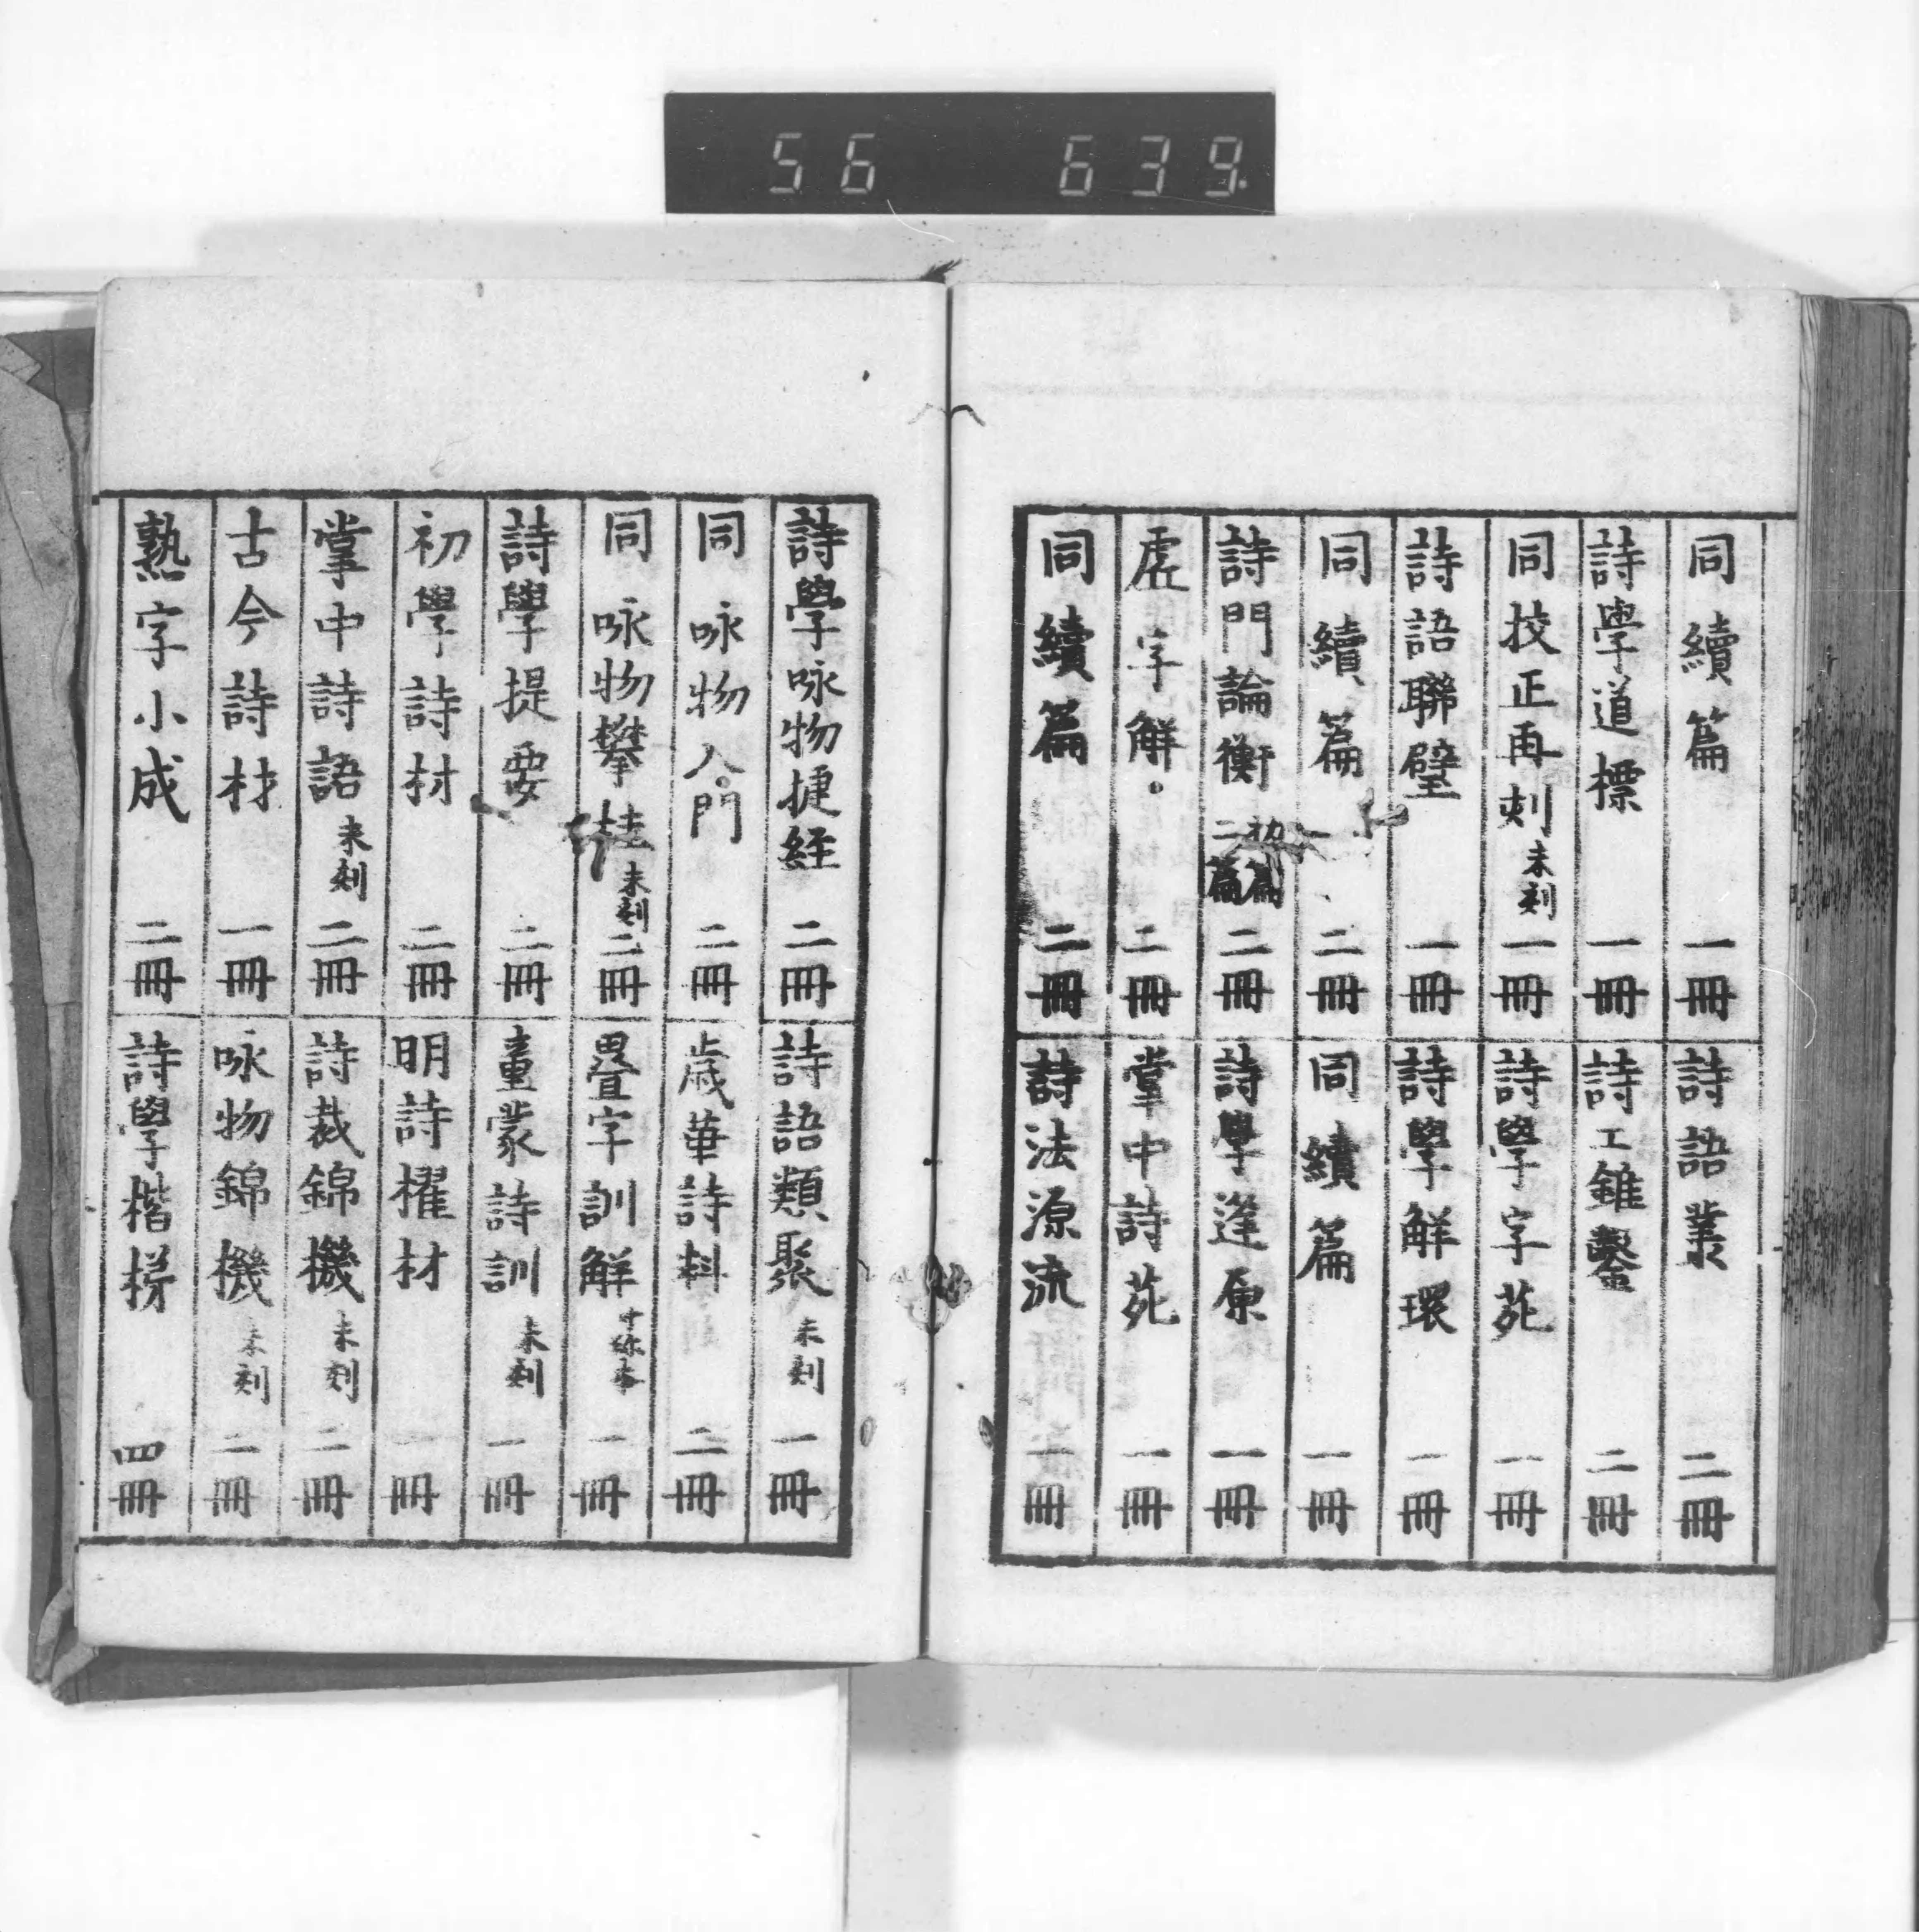 56 639
同續篇 一冊
詩學道標 一冊
同校正再刻 未刻 一冊
詩語聯璧 一冊
同續篇 二冊
詩門論衡 初篇二篇 二冊
虚字解 二冊
同續篇 二冊
詩語叢 二冊
詩工錐鑿 二冊
詩學字苑 一冊
詩學解環 一冊
同續篇 一冊
詩學逢原 一冊
掌中詩苑 一冊
詩法源流 一冊
詩學咏物捷経 二冊
同咏物入門 二冊
同咏物攀桂 未刻 二冊
詩學提要 二冊
初學詩材 二冊
掌中詩語 未刻 二冊
古今詩材 一冊
熟字小成 二冊
詩語類聚 未刻 一冊
歳華詩料 二冊
畳字訓解 一冊
童蒙詩訓 未刻 一冊
明詩擢材 一冊
詩裁錦機 未刻 二冊
咏物錦機 未刻 二冊
詩學楷梯 四冊